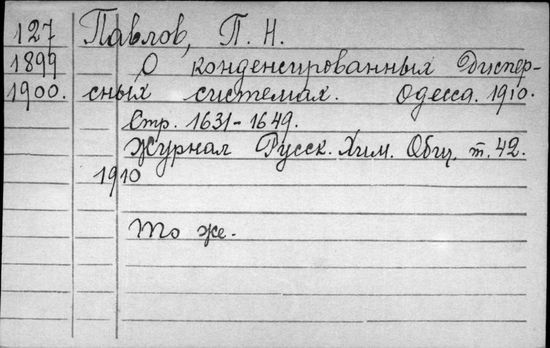 127 Павлов, П. Н.
1899 О конденсированных Диспер-
1900. сных системах. Одесса. 1910.
Стр. 1631-1649.
Журнал Русск. Хим. Общ. т. 42.
1910
То же.